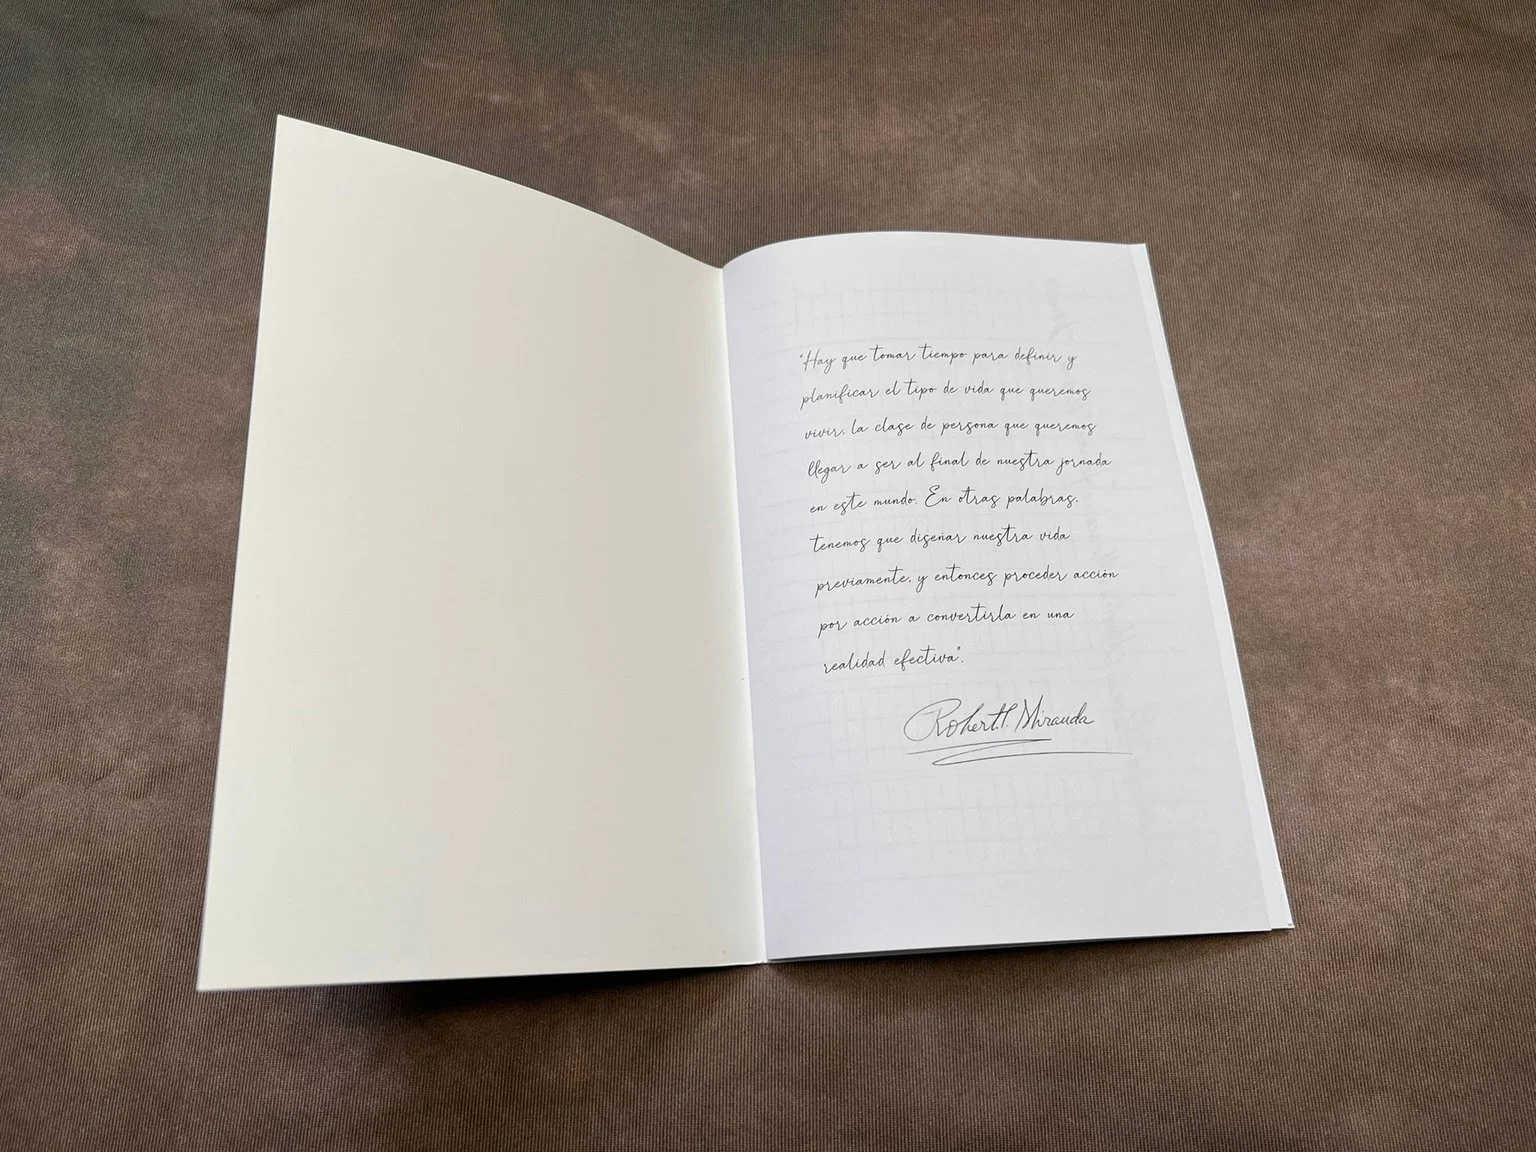 "Hay que tomar tiempo para definir y
planificar el tipo de vida que queremos
vivir, la clase de persona que queremos
llegar a ser al final de nuestra jornada
en este mundo. En otras palabras,
tenemos que diseñar nuestra vida
previamente, y entonces proceder acción
por acción a convertirla en una
realidad efectiva".
Robert T. Miranda